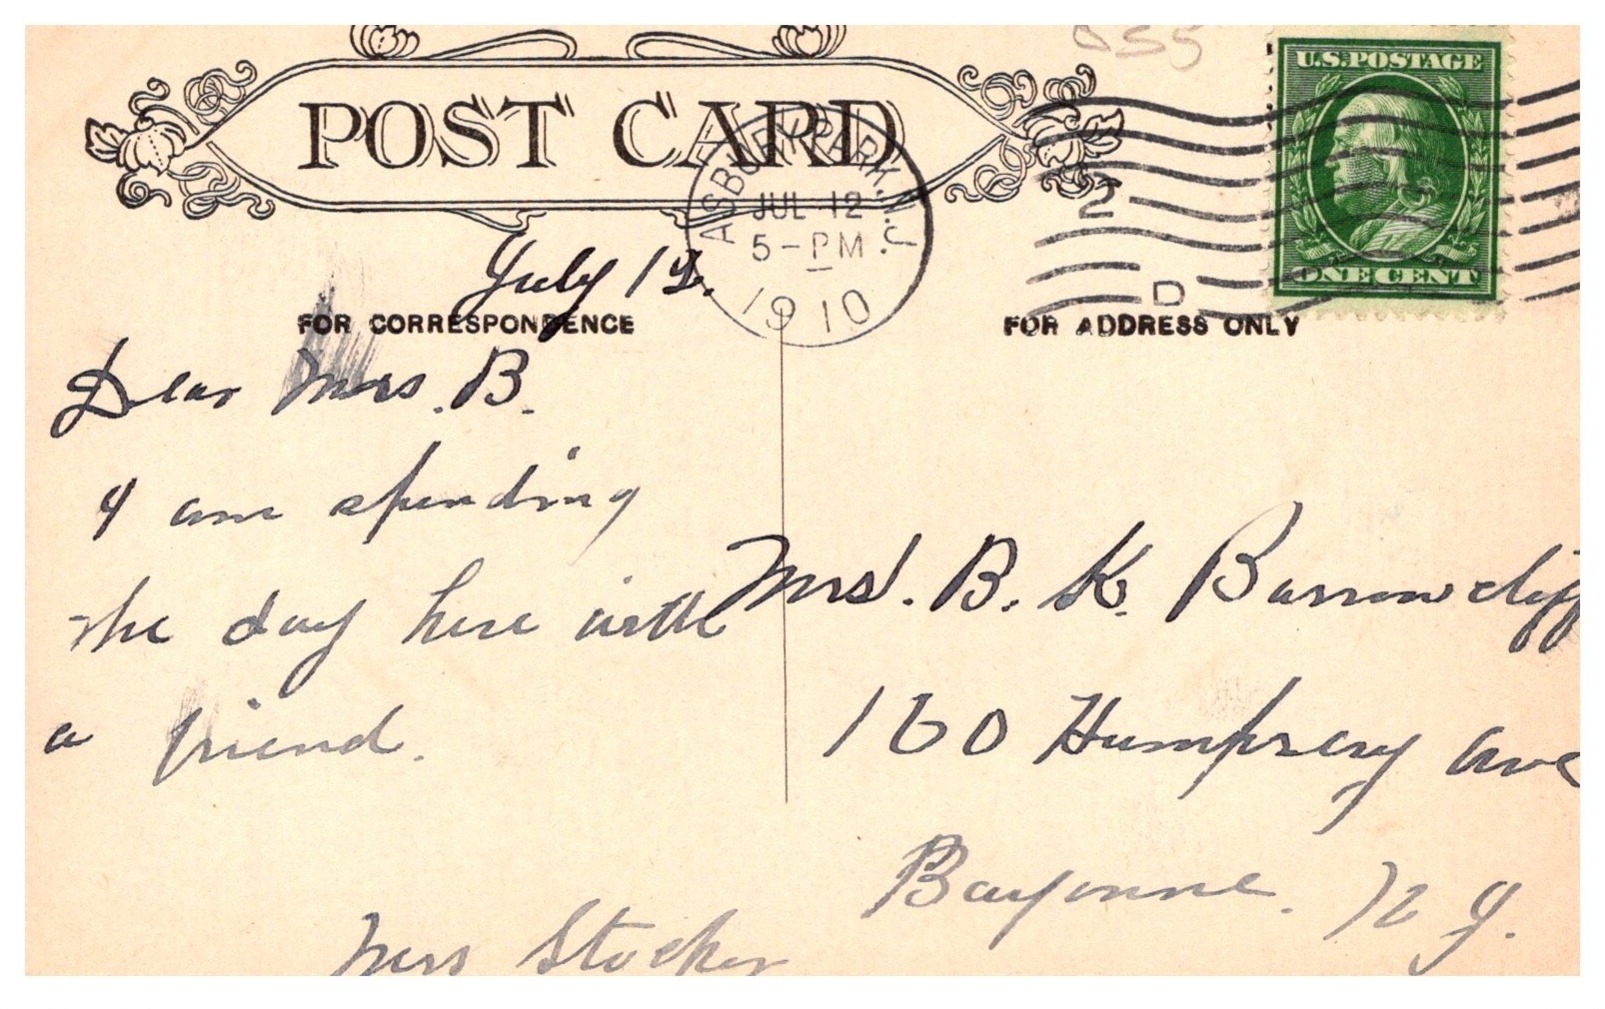 055
U.S. POSTAGE
POST CARD
ASBURY PARK, N.J.
JUL 12
5-PM
1910
2
D
ONE CENT
July 12.
FOR CORRESPONDENCE
FOR ADDRESS ONLY
Dear Mrs. B.
I am spending
the day here with
a friend.
Mrs Stocker
Mrs. B. K. Barrowcliff
160 Humphrey Ave
Bayonne. N J.